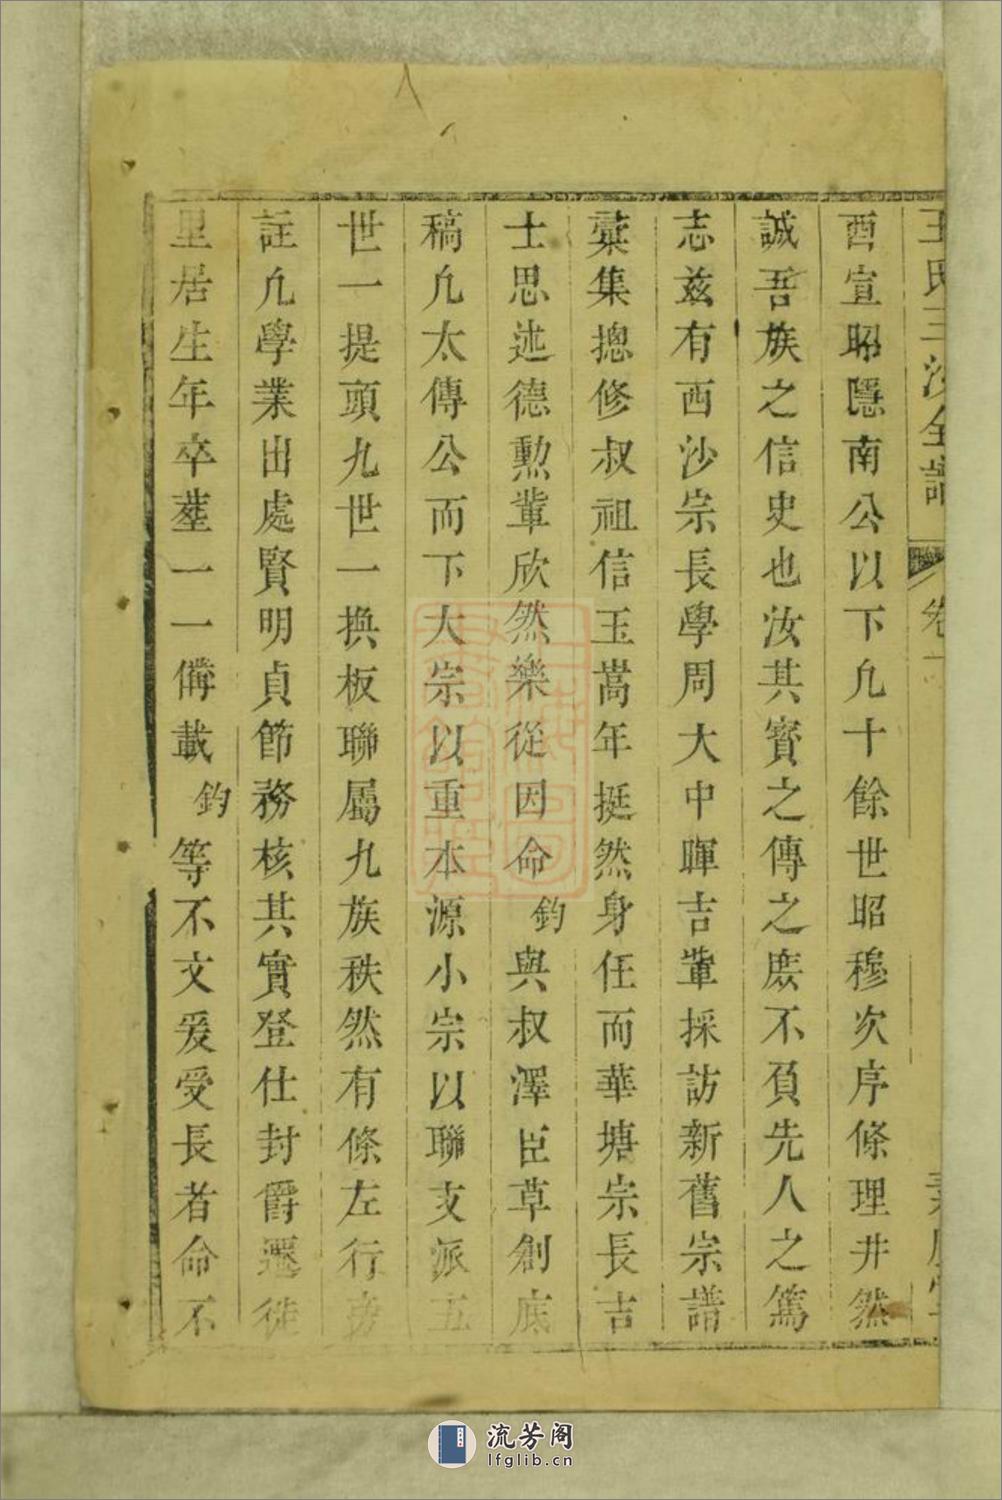 王氏三沙全譜
卷一
酉宣昭隱南公以下九十餘世昭穆次序條理井然
誠吾族之信史也汝其寳之傳之庶不負先人之篤
志兹有西沙宗長學周大中暉吉軰採訪新舊宗譜
彙集摠修叔祖信玉嵩年挺然身任而華塘宗長吉
士思述德勲軰欣然樂從因命鈞與叔澤臣草創底
稿凢太傳公而下大宗以重本源小宗以聯支派五
世一提頭九世一換板聯屬九族秩然有條左行旁
註凢學業出處賢明貞節務核其實登仕封爵遷徙
里居生年卒塟一一備載鈞等不文爰受長者命不
流芳阁
lfglib.cn